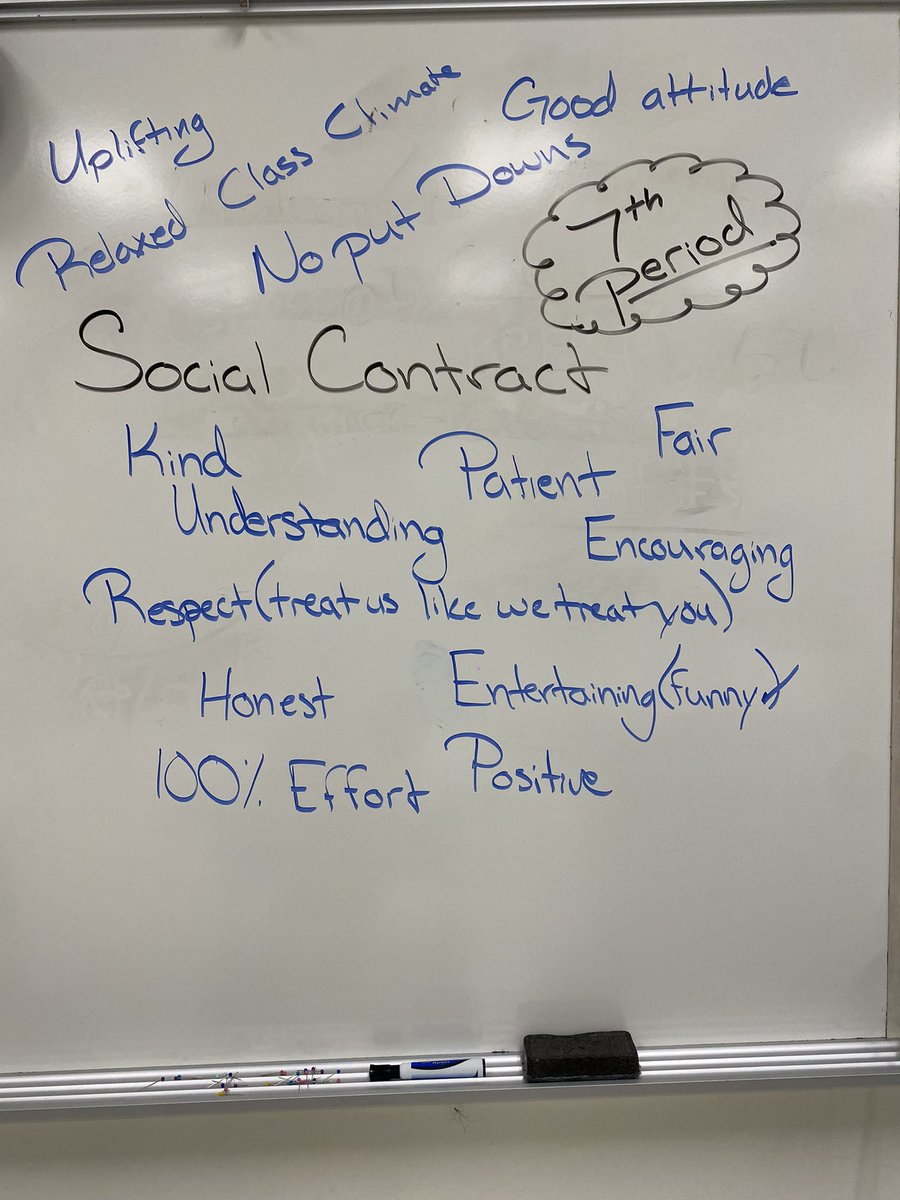 Uplifting
Relaxed Class Climate
Good attitude
No put Downs
7th
Period
Social Contract
Kind
Patient
Fair
Understanding
Encouraging
Respect (treat us like we treat you)
Honest
Entertaining (funny)
100% Effort
Positive